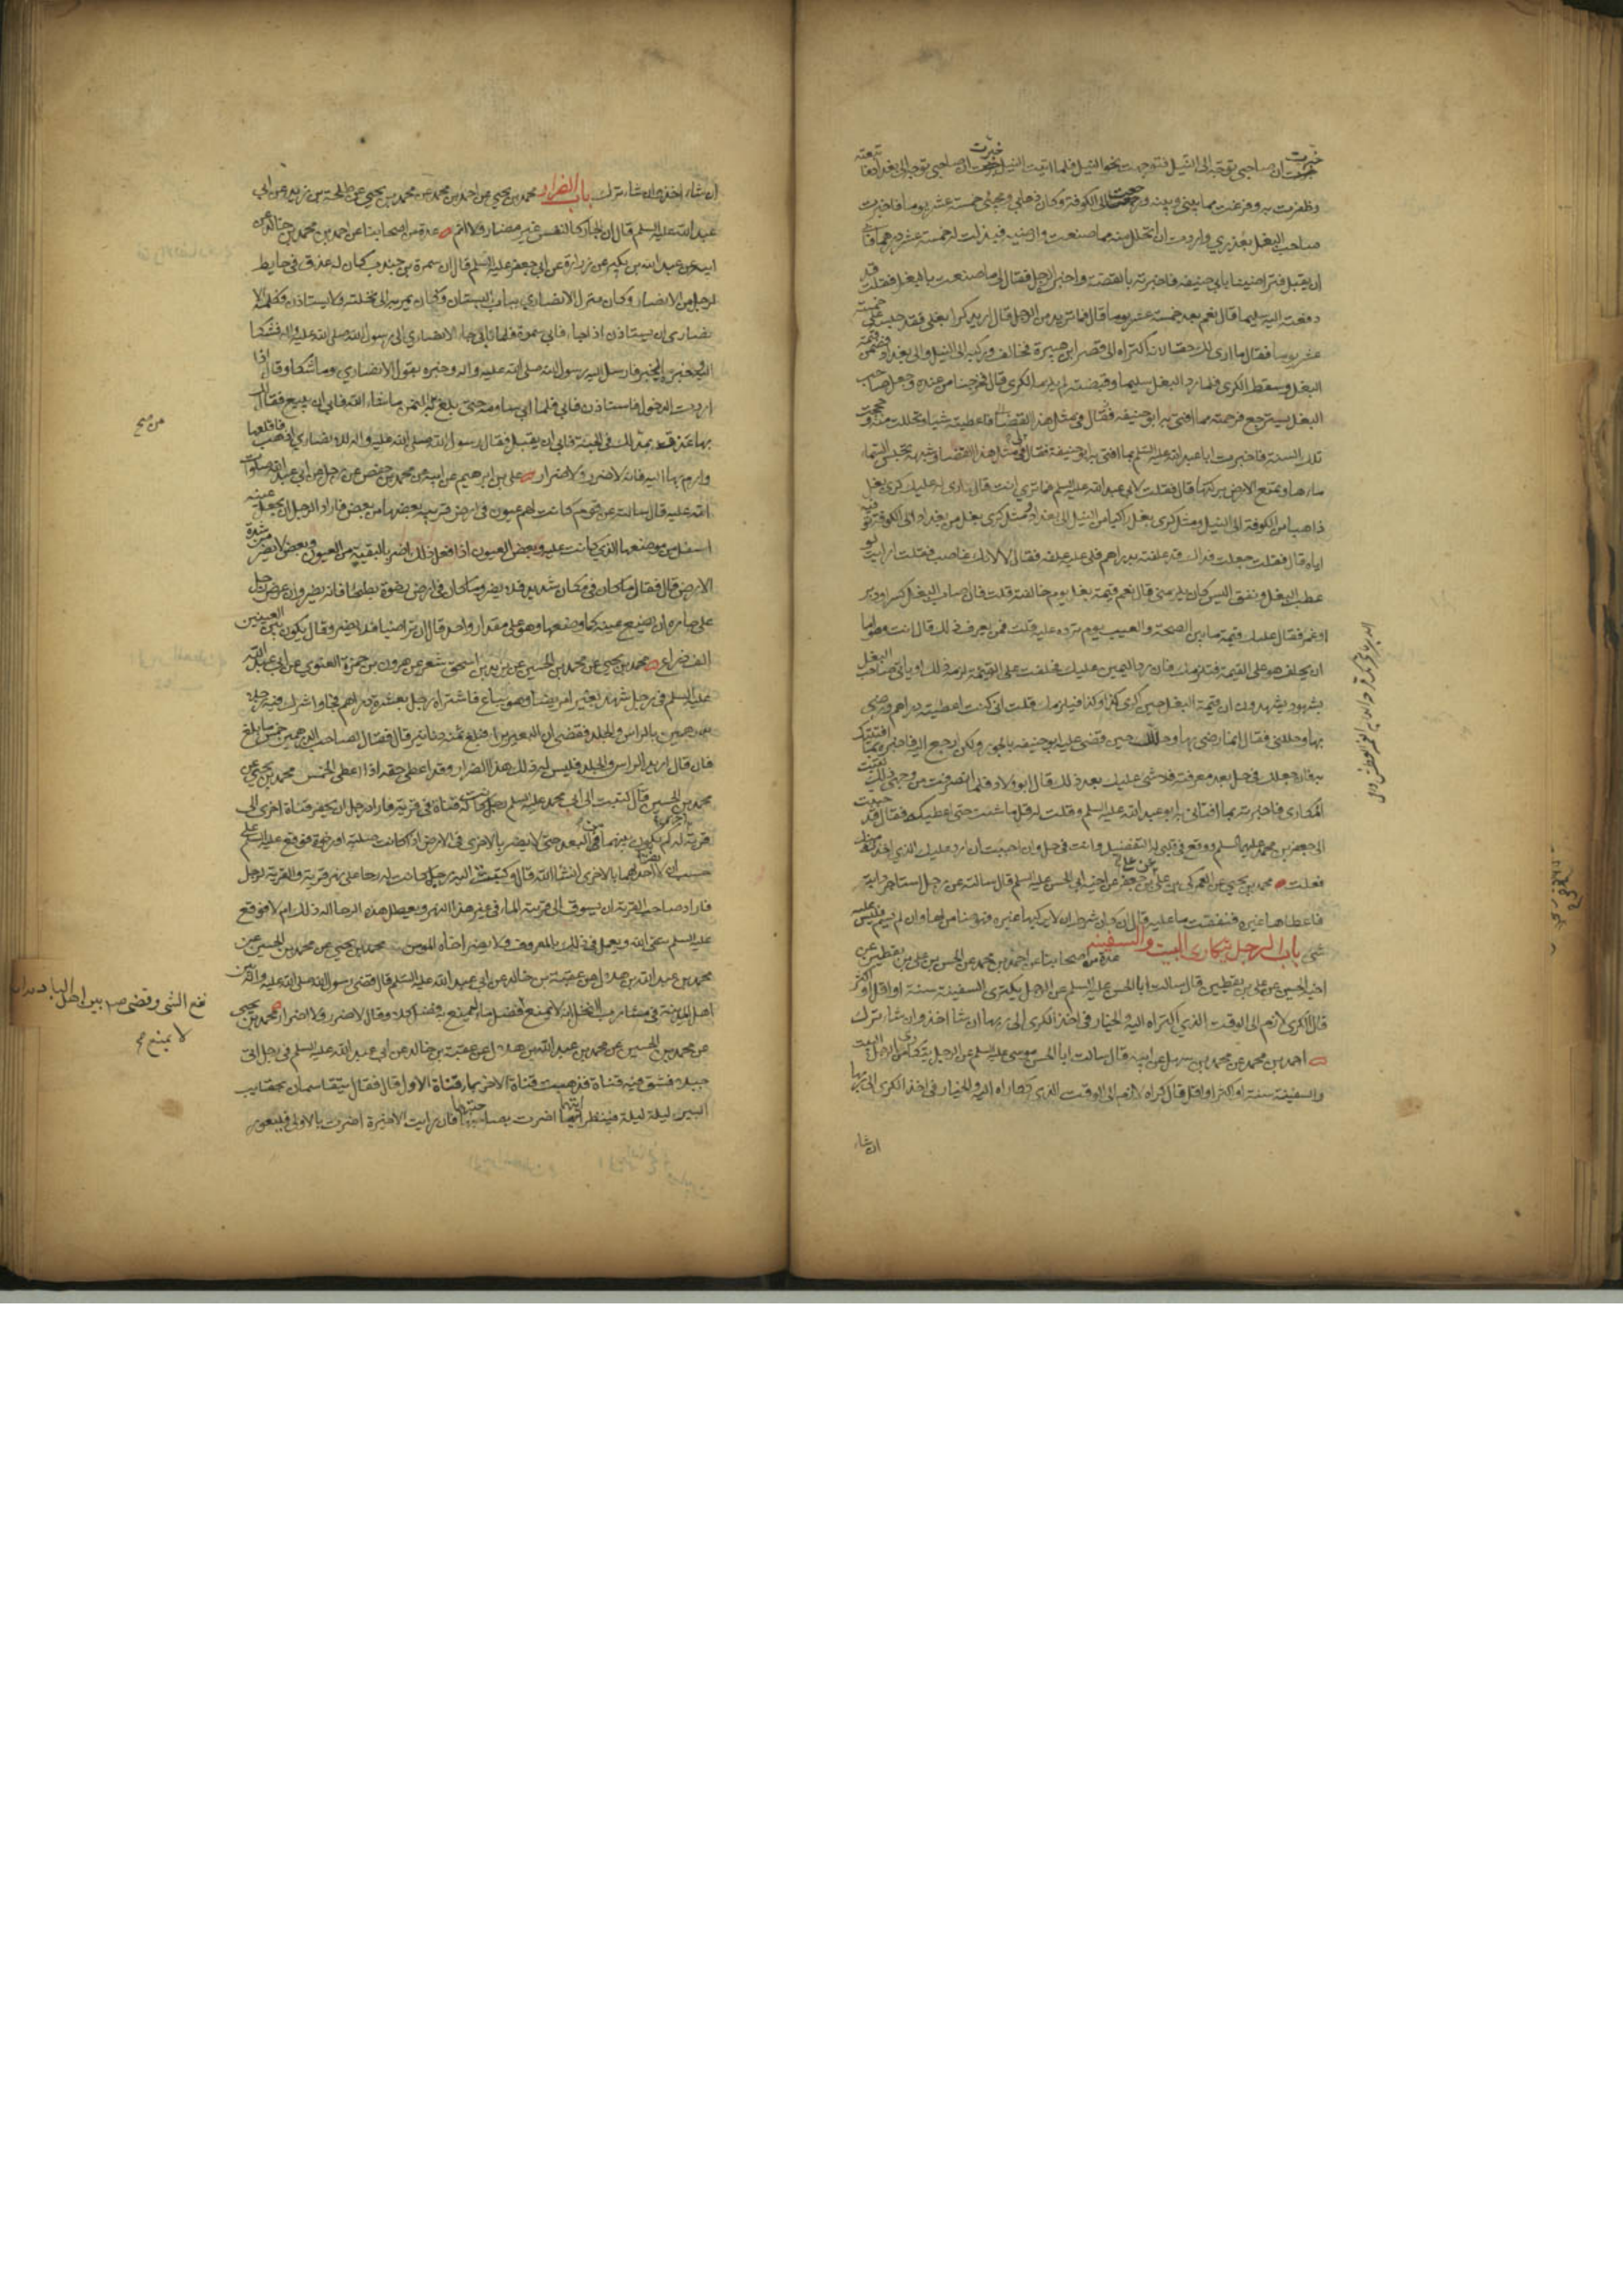 خبرت ان صاحبي توجه الى النيل فتوجهت نحو النيل فلما اتيت النيل خبرت ان صاحبي توجه الى بغداد فاتبعته
وظفرت به وفرغت مما بيني وبينه ورجعت الى الكوفة وكان ذهابي ومجيئي خمسة عشر يوما فاخبرت
صاحب البغل بعذري واردت ان اتحلل منه مما صنعت وارضيه فبذلت له خمسة عشر درهما فابى
ان يقبل فتراضينا بابي حنيفه فاخبرته بالقصة واخبره الرجل فقال لي ما صنعت بالبغل فقلت قد
دفعته اليه سليما قال نعم بعد خمسة عشر يوما قال فما تريد من الرجل قال اريد كرا بغلي فقد حبسه علي خمسة
عشر يوما فقال ما ارى لك حقا لانه اكتراه الى قصر ابن هبيرة فخالف وركبه الى النيل والى بغداد فضمن قيمة
البغل وسقط الكرى فلما رد البغل سليما وقبضته لم يلزمه الكرى قال فخرجنا من عنده وجعل صاحب
البغل يسترجع فرحمته مما افتى به ابو حنيفه فاعطيته شيا وتحللت منه وحججت
تلك السنة فاخبرت ابا عبد الله عليه السلم بما افتى به ابو حنيفة فقال في مثل هذا القضا وشبهه تحبس السماء
ماءها وتمنع الارض بركتها قال فقلت لابي عبد الله عليه السلم فما ترى انت قال ارى له عليك كرى بغل
ذاهبا من الكوفة الى النيل ومثل كرى بغل راكبا من النيل الى بغداد ومثل كرى بغل من بغداد الى الكوفة توفيه
اياه قال فقلت جعلت فداك قد علفته بدراهم فلي عليه علفه فقال لا لانك غاصب فقلت ارايت لو
عطب البغل ونفق اليس كان يلزمني قال نعم قيمة بغل يوم خالفته قلت فان اصاب البغل كسر او دبر
او غمز فقال عليك قيمة ما بين الصحة والعيب يوم ترده عليه قلت فمن يعرف ذلك قال انت وهو اما
ان يحلف هو على القيمة فتلزمك فان رد اليمين عليك فحلفت على القيمة لزمه ذلك او ياتي صاحب البغل
بشهود يشهدون ان قيمة البغل حين كرى كذا وكذا فيلزمك قلت اني كنت اعطيته دراهم ورضي
بها وحللني فقال انما رضي بها وحللك حين قضى عليه ابو حنيفه بالجور ولكن ارجع اليه فاخبره بما افتيتك
به فان جعلك في حل بعد معرفته فلا شي عليك بعد ذلك قال ابو ولاد فلما انصرفت من وجهي ذلك لقيت
المكاري فاخبرته بما افتاني به ابو عبد الله عليه السلم وقلت له قل ما شئت حتى اعطيكه فقال قد حببت
الي جعفر بن محمد عليهما السلم ووقع في قلبي له التفضيل وانت في حل وان احببت ان ارد عليك الذي اخذت منك
فعلت محمد بن يحيى عن العمركي بن علي عن علي بن جعفر عن اخيه ابي الحسن عليه السلم قال سالته عن رجل استاجر دابة
فاعطاها غيره فنفقت ما عليه قال ان كان شرط ان لا يركبها غيره فهو ضامن لها وان لم يسم فليس عليه
شي باب الرجل يتكارى البيت والسفينه عدة من اصحابنا عن احمد بن محمد عن الحسن بن علي بن يقطين عن
اخيه الحسين عن علي بن يقطين قال سالت ابا الحسن عليه السلم عن الرجل يكترى السفينة سنة او اقل او اكثر
قال الكرى لازم الى الوقت الذي اكتراه اليه والخيار في اخذ الكرى الى ربها ان شا اخذ وان شاء ترك
احمد بن محمد عن محمد بن سهل عن ابيه قال سالت ابا الحسن موسى عليه السلم عن الرجل يتكارى من الرجل البيت
والسفينة سنة او اكثر او اقل قال كراه لازم الى الوقت الذي تكاراه اليه والخيار في اخذ الكرى الى ربها
ان شاء
ان شاء اخذ وان شاء ترك باب الضرار محمد بن يحيى عن احمد بن محمد عن محمد بن يحيى عن طلحة بن زيد عن ابي
عبد الله عليه السلم قال ان الجار كالنفس غير مضار ولا اثم عدة من اصحابنا عن احمد بن محمد بن خالد عن
ابيه عن عبد الله بن بكير عن زرارة عن ابي جعفر عليه السلم قال ان سمرة بن جندب كان له عذق في حايط
لرجل من الانصار وكان منزل الانصاري بباب البستان وكان يمر به الى نخلته ولا يستاذن فكلمه الا
نصاري ان يستاذن اذا جاء فابى سمرة فلما تابى جاء الانصاري الى رسول الله صلى الله عليه واله فشكا
اليه وخبره الخبر فارسل اليه رسول الله صلى الله عليه واله وخبره بقول الانصاري وما شكا وقال اذا
اردت الدخول فاستاذن فابى فلما ابى ساومه حتى بلغ من الثمن ما شاء الله فابى ان يبيع فقال لك
بها عذق يمد لك في الجنة فابى ان يقبل فقال رسول الله صلى الله عليه واله للانصاري اذهب فاقلعها
وارم بها اليه فانه لا ضرر ولا ضرار علي بن ابرهيم عن ابيه عن محمد بن حفص عن رجل عن ابي عبد الله صلوات
الله عليه قال سالت عن قوم كانت لهم عيون في ارض قريبة بعضها من بعض فاراد الرجل ان يجعل عينه
اسفل من موضعها الذي كانت عليه وبعض العيون اذا فعل ذلك اضر بالبقية من العيون وبعض لا يضر من شدة
الارض قال فقال ما كان في مكان شديد فلا يضر وما كان في ارض رخوة بطحا فانه يضر وان عرض رجل
على جاره ان يضع عينه كما وضعها وهو على مقدار واحد قال ان تراضيا فلا يضر وقال يكون بين العينين
الف ذراع محمد بن يحيى عن محمد بن الحسين عن يزيد بن اسحق شعر عن هرون بن حمزة الغنوي عن ابي عبد الله
عليه السلم في رجل شهد بعيرا مريضا وهو يباع فاشتراه رجل بعشرة دراهم فجا واشرك فيه رجلا
بدرهمين بالراس والجلد فقضي ان البعير برا فبلغ ثمنه دنانير قال فقال لصاحب الدرهمين خمس ما بلغ
فان قال اريد الراس والجلد فليس له ذلك هذا الضرار وقد اعطي حقه اذا اعطي الخمس محمد بن يحيى عن
محمد بن الحسين قال كتبت الى ابي محمد عليه السلم رجل كانت له قناة في قرية فاراد رجل ان يحفر قناة اخرى الى
قرية له كم يكون بينهما في البعد حتى لا يضر بالاخرى في الارض اذا كانت صلبة او رخوة فوقع عليه السلم على
حسب ان لا تضر احدهما بالاخرى انشا الله قال وكتبت اليه رجل كانت له رحا على نهر قرية والقرية لرجل
فاراد صاحب القرية ان يسوق الى قريته الما في غير هذا النهر ويعطل هذه الرحا اله ذلك ام لا فوقع
عليه السلم يتقي الله ويعمل في ذلك بالمعروف ولا يضر اخاه المومن محمد بن يحيى عن محمد بن الحسين عن
محمد بن عبد الله بن هلال عن عقبة بن خالد عن ابي عبد الله عليه السلم قال قضى رسول الله صلى الله عليه واله بين
اهل المدينة في مشارب النخل انه لا يمنع فضل ماء ليمنع به فضل كلاء وقال لا ضرر ولا ضرار محمد بن يحيى
عن محمد بن الحسين عن محمد بن عبد الله بن هلال عن عقبة بن خالد عن ابي عبد الله عليه السلم في رجل اتى
جبلا فشق فيه قناة فذهبت قناة الاخر بماء قناة الاول قال فقال يتقاسمان بحقايب
البير ليلة ليلة فينظر ايتهما اضرت بصاحبتها فان رايت الاخيرة اضرت بالاولى فليعور
نفع الشي وقضى ص بين اهل البادية انه
لا يمنع